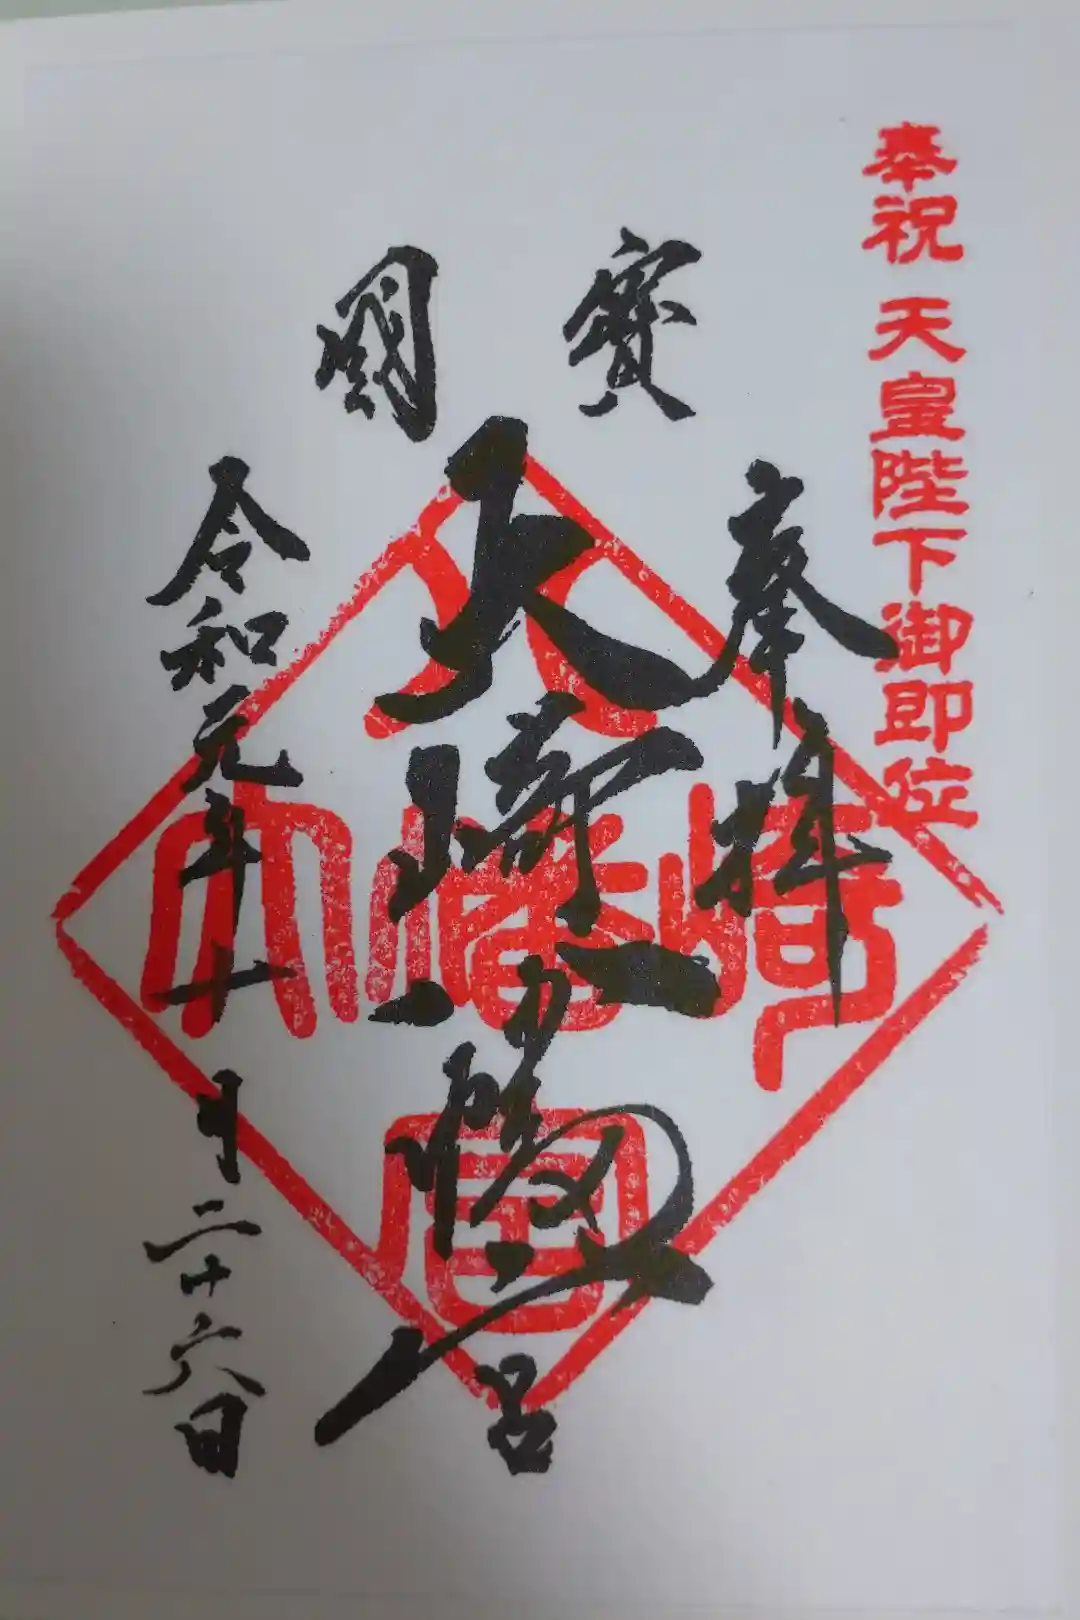 奉祝 天皇陛下御即位
國寳
奉拝
大崎八幡宮
令和元年十月二十六日
大崎八幡宮